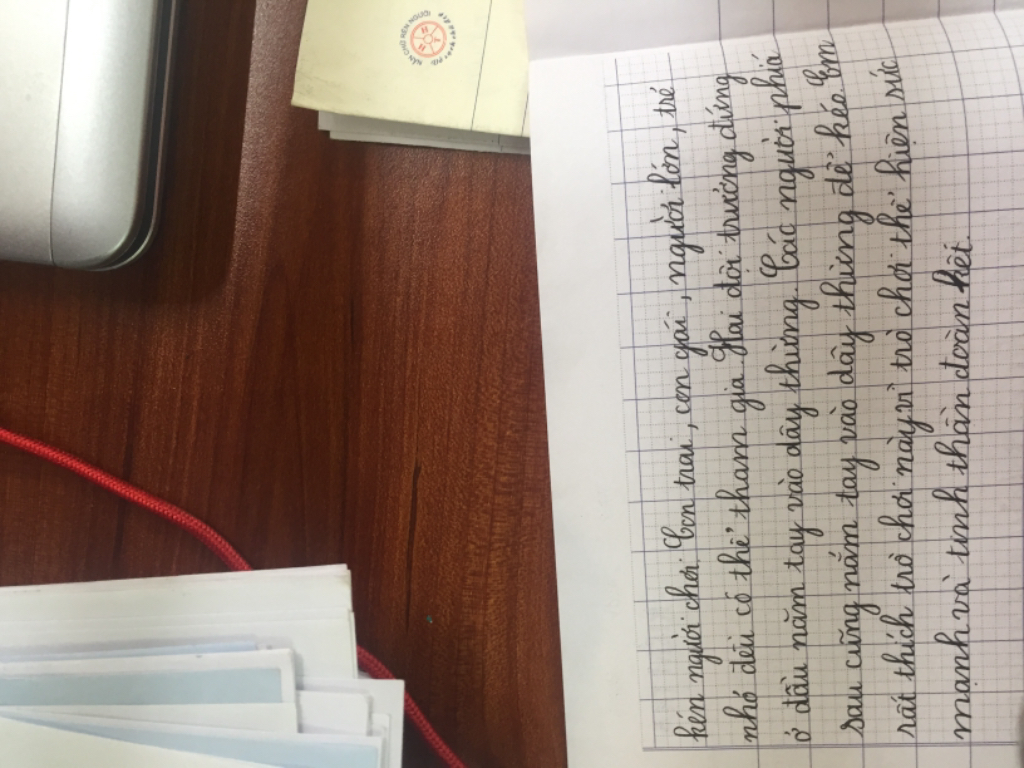 kén người chơi. Con trai, con gái, người lớn, trẻ
nhỏ đều có thể tham gia. Hai đội trưởng đứng
ở đầu nắm tay vào dây thừng. Các người phía
sau cũng nắm tay vào dây thừng để kéo. Em
rất thích trò chơi này vì trò chơi thể hiện sức
mạnh và tinh thần đoàn kết.
NÉT CHỮ NẾT NGƯỜI